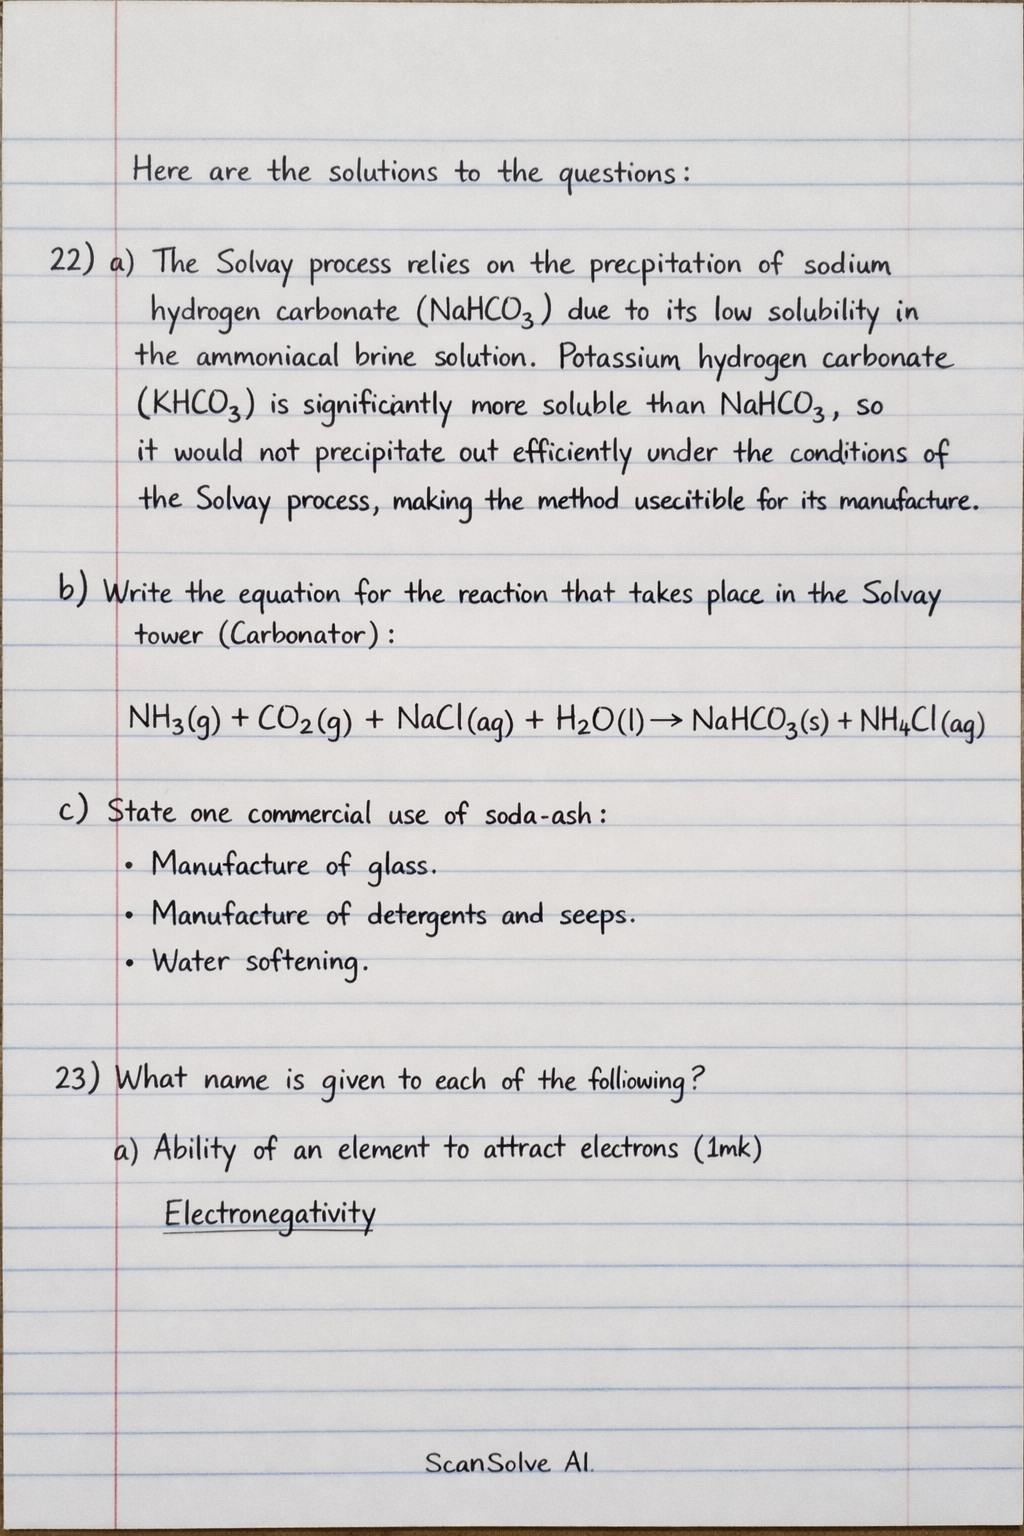 Here are the solutions to the questions:
22) a) The Solvay process relies on the precpitation of sodium
hydrogen carbonate (NaHCO₃) due to its low solubility in
the ammoniacal brine solution. Potassium hydrogen carbonate
(KHCO₃) is significantly more soluble than NaHCO₃, so
it would not precipitate out efficiently under the conditions of
the Solvay process, making the method usecitible for its manufacture.
b) Write the equation for the reaction that takes place in the Solvay
tower (Carbonator):
NH₃(g) + CO₂(g) + NaCl(ag) + H₂O(l) → NaHCO₃(s) + NH₄Cl(ag)
c) State one commercial use of soda-ash:
• Manufacture of glass.
• Manufacture of detergents and seeps.
• Water softening.
23) What name is given to each of the folliowing?
a) Ability of an element to attract electrons (1mk)
Electronegativity
ScanSolve AI.